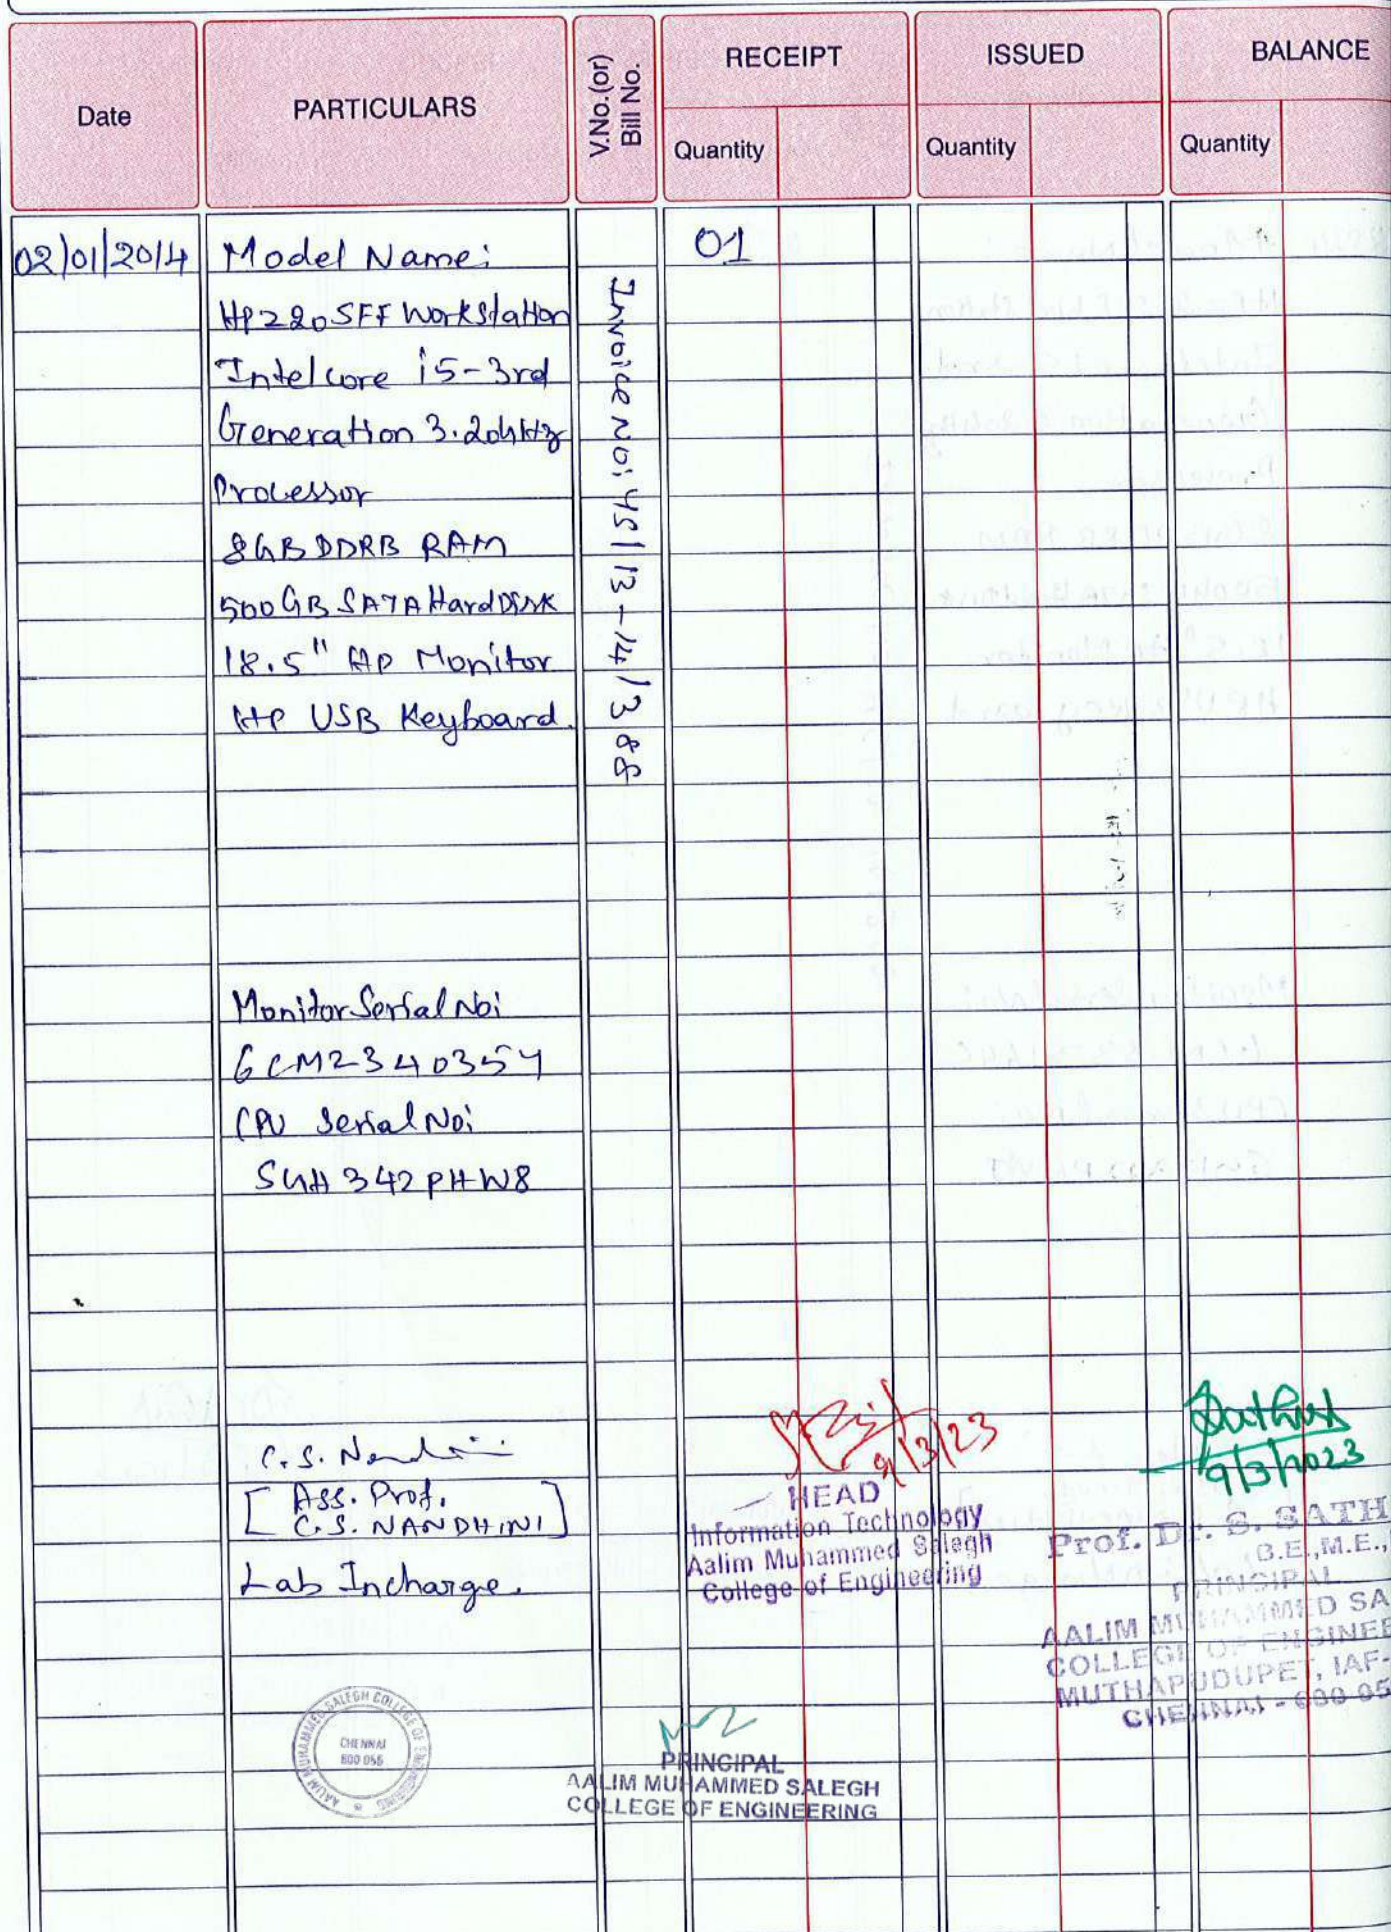 Date
PARTICULARS
V.No.(or)
Bill No.
RECEIPT
ISSUED
BALANCE
Quantity
Quantity
Quantity
02/01/2014
Model Name:
01
HP220SFF Workstation
Intel core i5-3rd
Generation 3.20GHz
Processor
8GB DDRB RAM
500GB SATA Hard Disk
18.5" HP Monitor
HP USB Keyboard.
Invoice No: 451/13-14/388
Monitor Serial No:
6CM2340354
CPU Serial No:
SGH342PHW8
C.S. Nandhini
[Ass. Prof.
C.S. NANDHINI]
Lab Incharge.
9/3/23
HEAD
Information Technology
Aalim Muhammed Salegh
College of Engineering
9/3/2023
Prof. Dr. S. SATH
B.E.,M.E.,
PRINCIPAL
AALIM MUHAMMED SA
COLLEGE OF ENGINEE
MUTHAPUDUPET, IAF-
CHENNAI - 600 05
AALIM MUHAMMED SALEGH COLLEGE OF ENGINEERING
CHENNAI
600 055
PRINCIPAL
AALIM MUHAMMED SALEGH
COLLEGE OF ENGINEERING